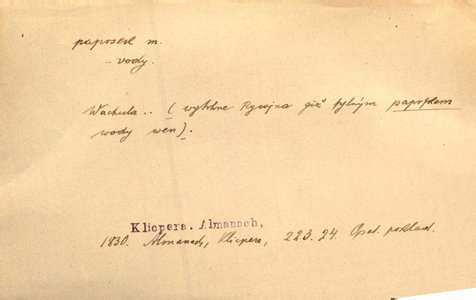 paprsek m.
– vody.
Wachula .. (wytrhne Rywjna giž sylným paprskem
wody wen).
Klicpera. Almanach,
1830. Almanach, Klicpera, 223.24 Opat. poklad.